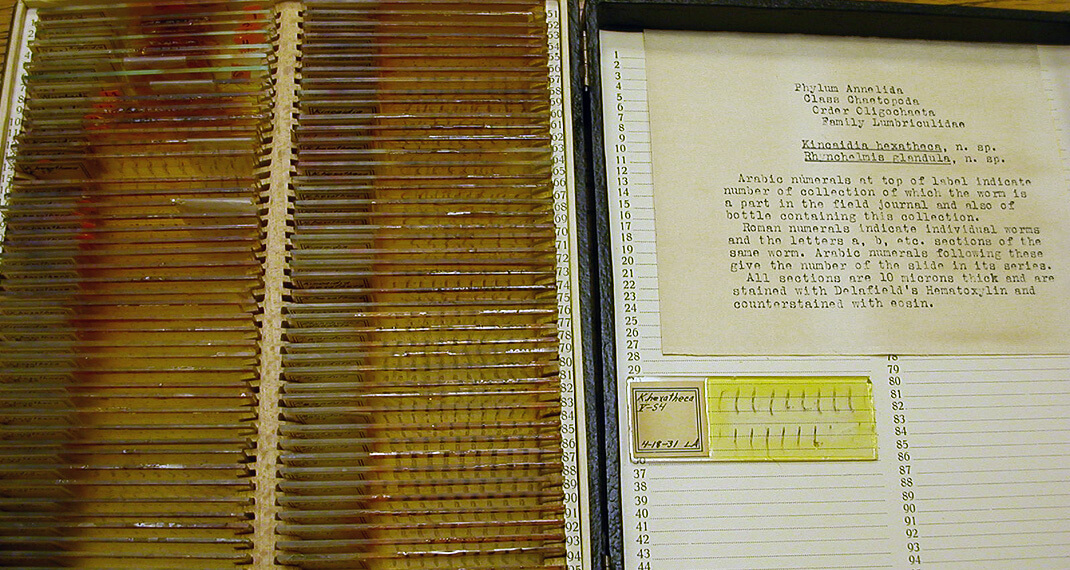 Phylum Annelida
Class Chaetopoda
Order Oligochaeta
Family Lumbriculidae
Kincaidia hexatheca, n. sp.
Rhynchelmis glandula, n. sp.
Arabic numerals at top of label indicate
number of collection of which the worm is
a part in the field journal and also of
bottle containing this collection.
Roman numerals indicate individual worms
and the letters a, b, etc. sections of the
same worm. Arabic numerals following these
give the number of the slide in its series.
All sections are 10 microns thick and are
stained with Delafield's Hematoxylin and
counterstained with eosin.
K hexatheca
4-18-31 LA
1
2
3
4
5
6
7
8
9
10
11
12
13
14
15
16
17
18
19
20
21
22
23
24
25
26
27
28
29
37
38
39
40
41
42
43
44
78
79
80
81
82
83
84
85
86
87
88
89
90
91
92
93
94
51
52
53
54
55
62
63
64
65
66
67
68
69
70
71
72
73
74
75
76
77
78
79
80
81
82
83
84
85
86
87
88
89
90
91
92
93
94